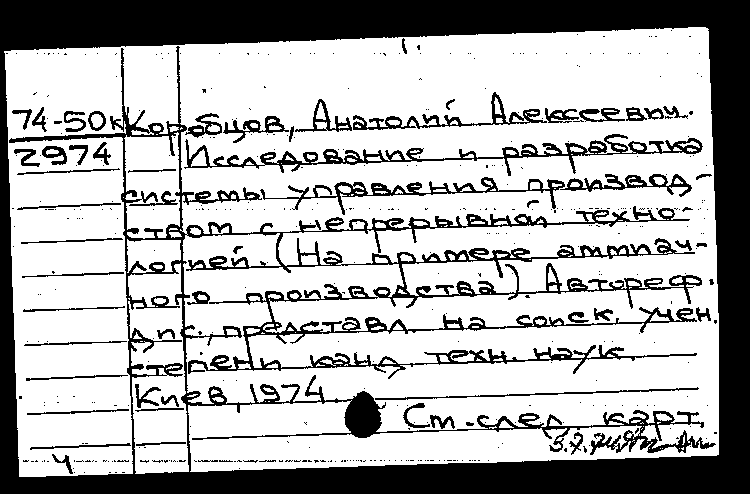 1.
74-50к Коробцов, Анатолий Алексеевич.
2974 Исследование и разработка
системы управления производ-
ством с непрерывной техно-
логией. (На примере аммиач-
ного производства). Автореф.
дис., представл. на соиск. учен.
степени канд. техн. наук.
Киев, 1974.
См. след. карт.
ч